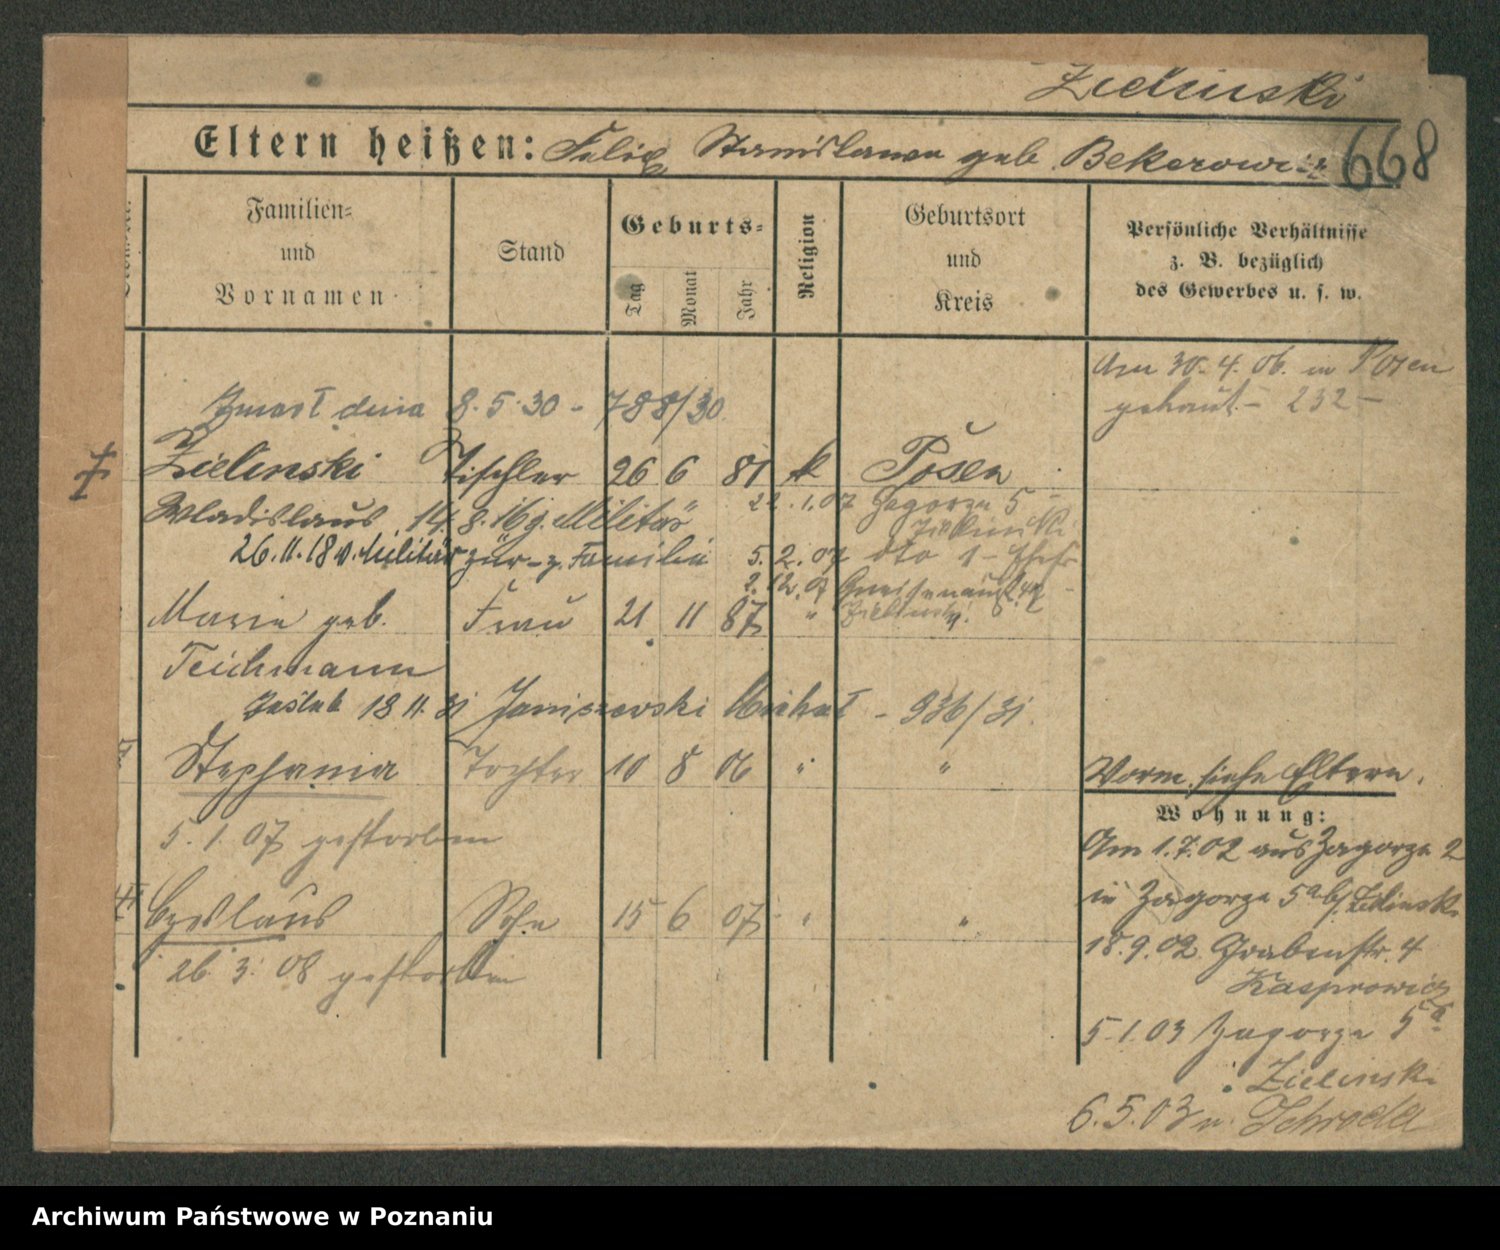 Zielinski
Eltern heißen: Felix Stanislawa geb. Bekerowicz 668
Familien= und Vornamen
Stand
Geburts=
Tag Monat Jahr
Religion
Geburtsort und Kreis
Persönliche Verhältnisse z. B. bezüglich des Gewerbes u. s. w.
Am 30.4.06. in Posen
getraut - 232 -
Zmarł dnia 8.5.30 - 788/30
Zielinski Tischler 26 6 81 k Posen
22.1.07 Zagorze 5
Wladislaus 14.8.16 z. Militär
Zielinski
26.11.18 v. Militär zur. z. Familie 5.2.07 dto 1
2.12.07 Gneisenaustr.
Marie geb. Frau 21 11 87 " Zielinski
Teichmann
Zaślub 18 11 31 Janiszewski Michał - 936/31.
Stephania Tochter 10 8 06 " "
Vorm. siehe Eltern.
Wohnung:
5.1.07 gestorben
Am 1.7.02 aus Zagorze 2
in Zagorze 5a b/ Zielinski
Czeslaus Sohn 15 6 07 " "
18.9.02 Grabenstr. 4
26.3.08 gestorben
Kasprowicz
5.1.03 Zagorze 5a
Zielinski
6.5.03 n. Schroda
Archiwum Państwowe w Poznaniu